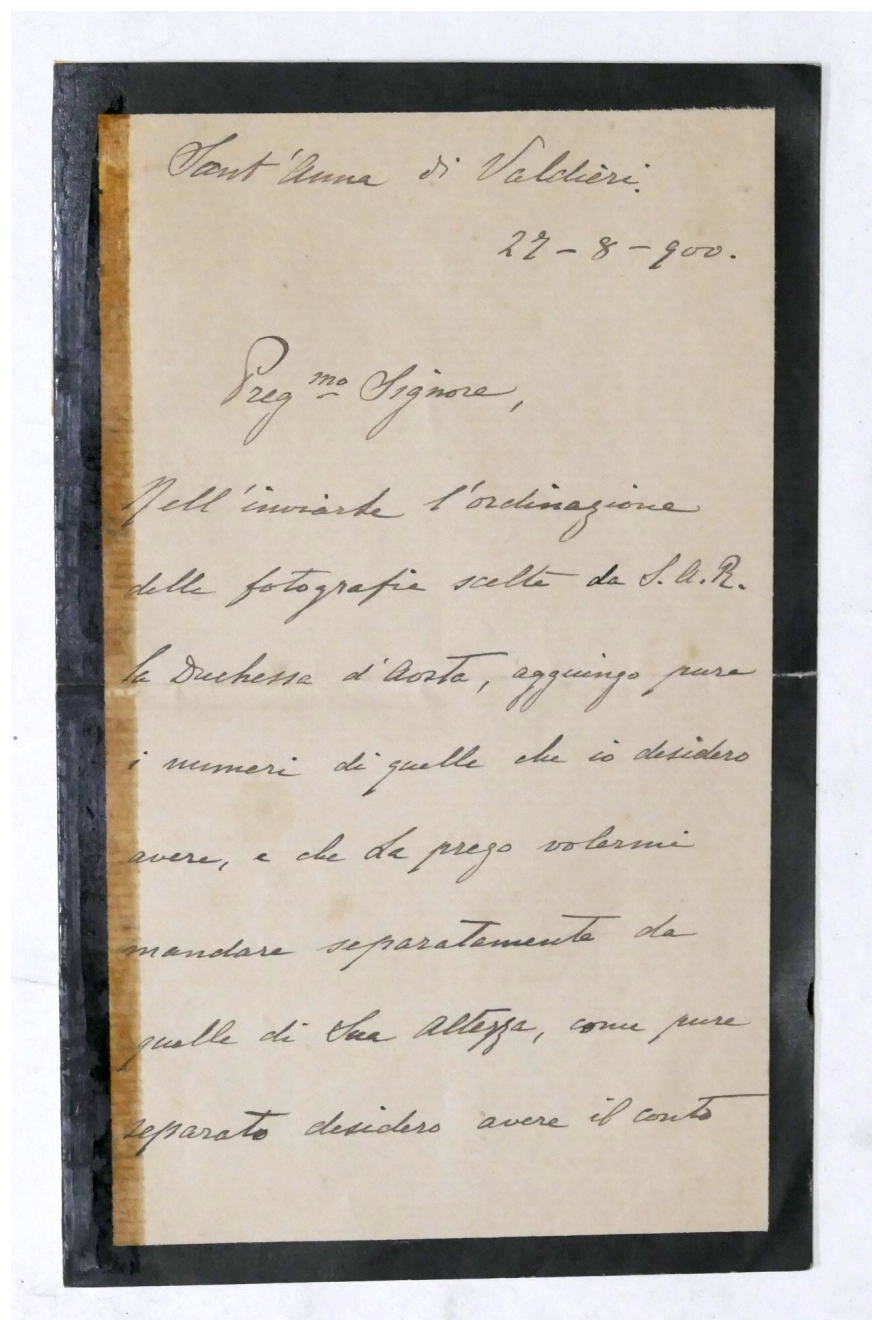 Sant'Anna di Valdieri.
27 - 8 - 900.
Preg.mo Signore,
Nell'inviarte l'ordinazione
delle fotografie scelte da S. A. R.
la Duchessa d'Aosta, aggiungo pure
i numeri di quelle che io desidero
avere, e che La prego volermi
mandare separatamente da
quelle di Sua Altezza, come pure
separato desidero avere il conto